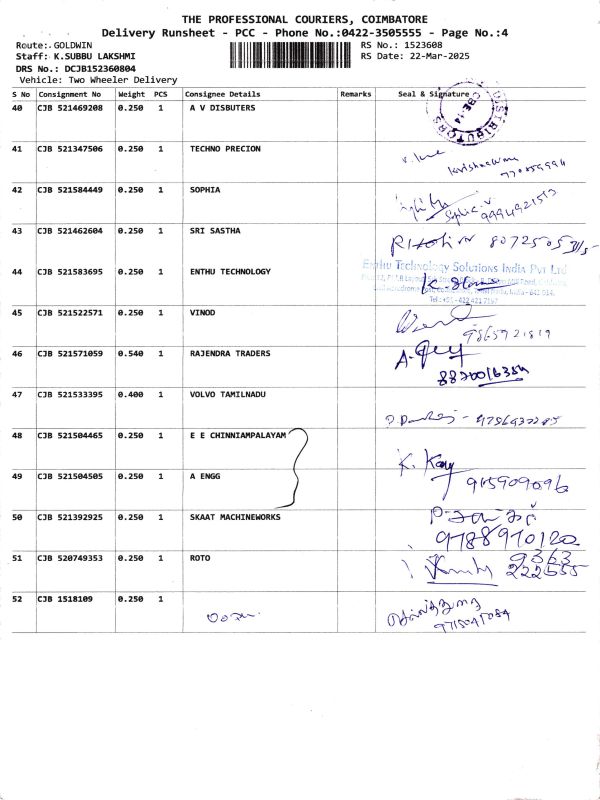 THE PROFESSIONAL COURIERS, COIMBATORE
Delivery Runsheet - PCC - Phone No.:0422-3505555 - Page No.:4
Route:.GOLDWIN
RS No.: 1523608
Staff: K.SUBBU LAKSHMI
RS Date: 22-Mar-2025
DRS No.: DCJB152360804
Vehicle: Two Wheeler Delivery
S No Consignment No Weight PCS Consignee Details Remarks Seal & Signature
40 CJB 521469208 0.250 1 A V DISBUTERS
CBE-14
41 CJB 521347506 0.250 1 TECHNO PRECION
42 CJB 521584449 0.250 1 SOPHIA
9994921513
43 CJB 521462604 0.250 1 SRI SASTHA
44 CJB 521583695 0.250 1 ENTHU TECHNOLOGY
Enthu Technology Solutions India Pvt Ltd
45 CJB 521522571 0.250 1 VINOD
9865921819
46 CJB 521571059 0.540 1 RAJENDRA TRADERS
47 CJB 521533395 0.400 1 VOLVO TAMILNADU
48 CJB 521504465 0.250 1 E E CHINNIAMPALAYAM
49 CJB 521504505 0.250 1 A ENGG
915909096
50 CJB 521392925 0.250 1 SKAAT MACHINEWORKS
9788970120
51 CJB 520749353 0.250 1 ROTO
9363
222555
52 CJB 1518109 0.250 1